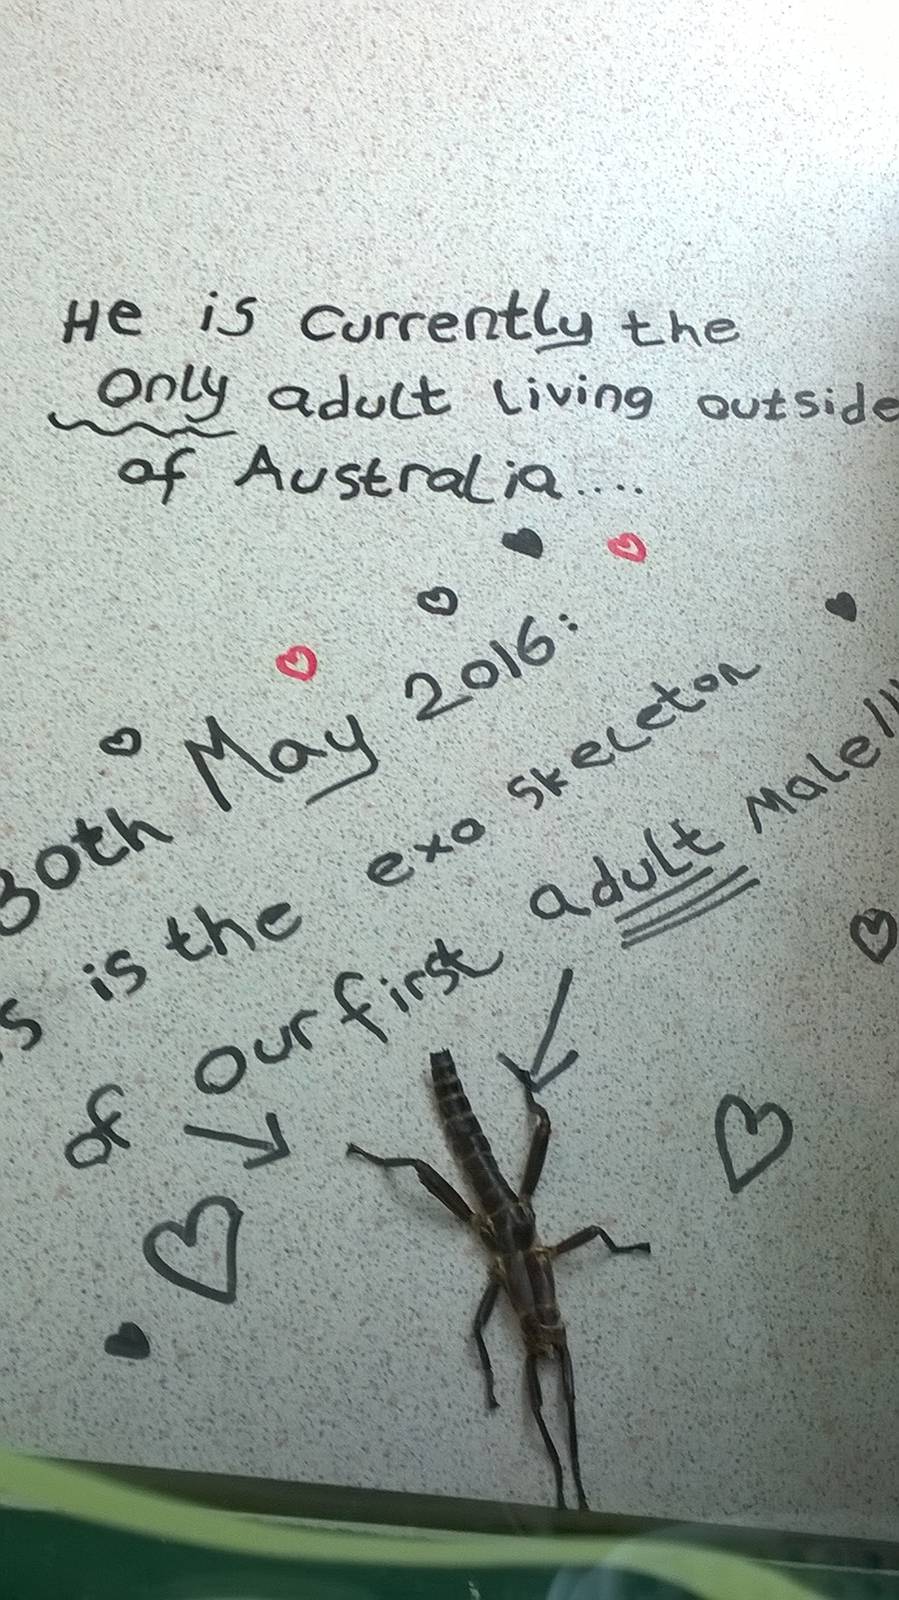 He is currently the
only adult living outside
of Australia....
30th May 2016:
s is the exo skeleton
of our first adult male!!